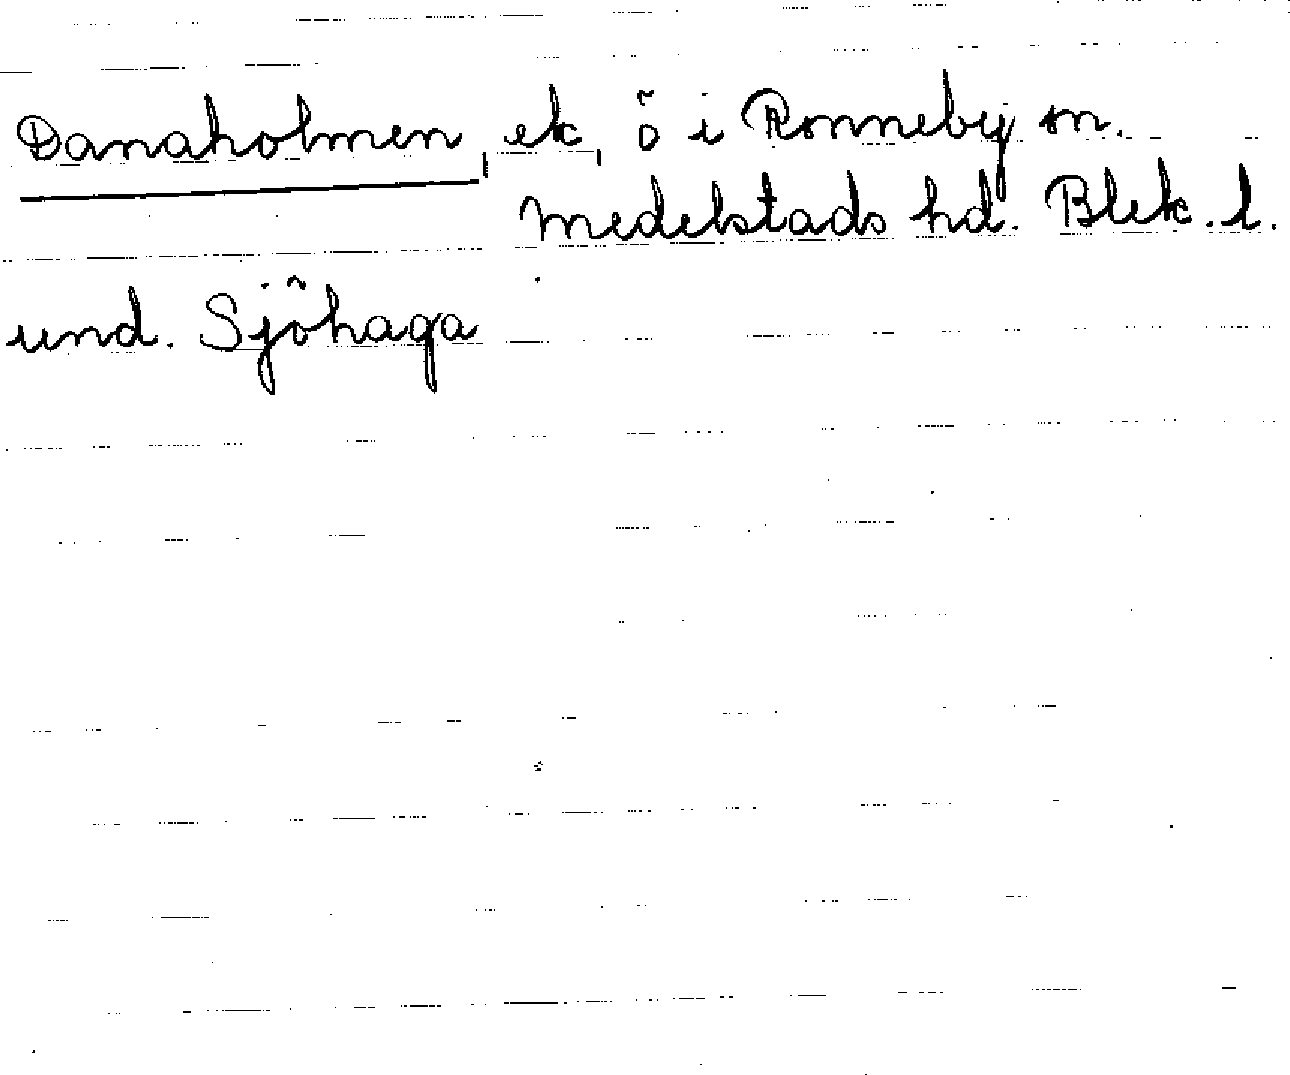 Danaholmen, ek, ö i Ronneby sn.
Medelstads hd. Blek. l.
und. Sjöhaga